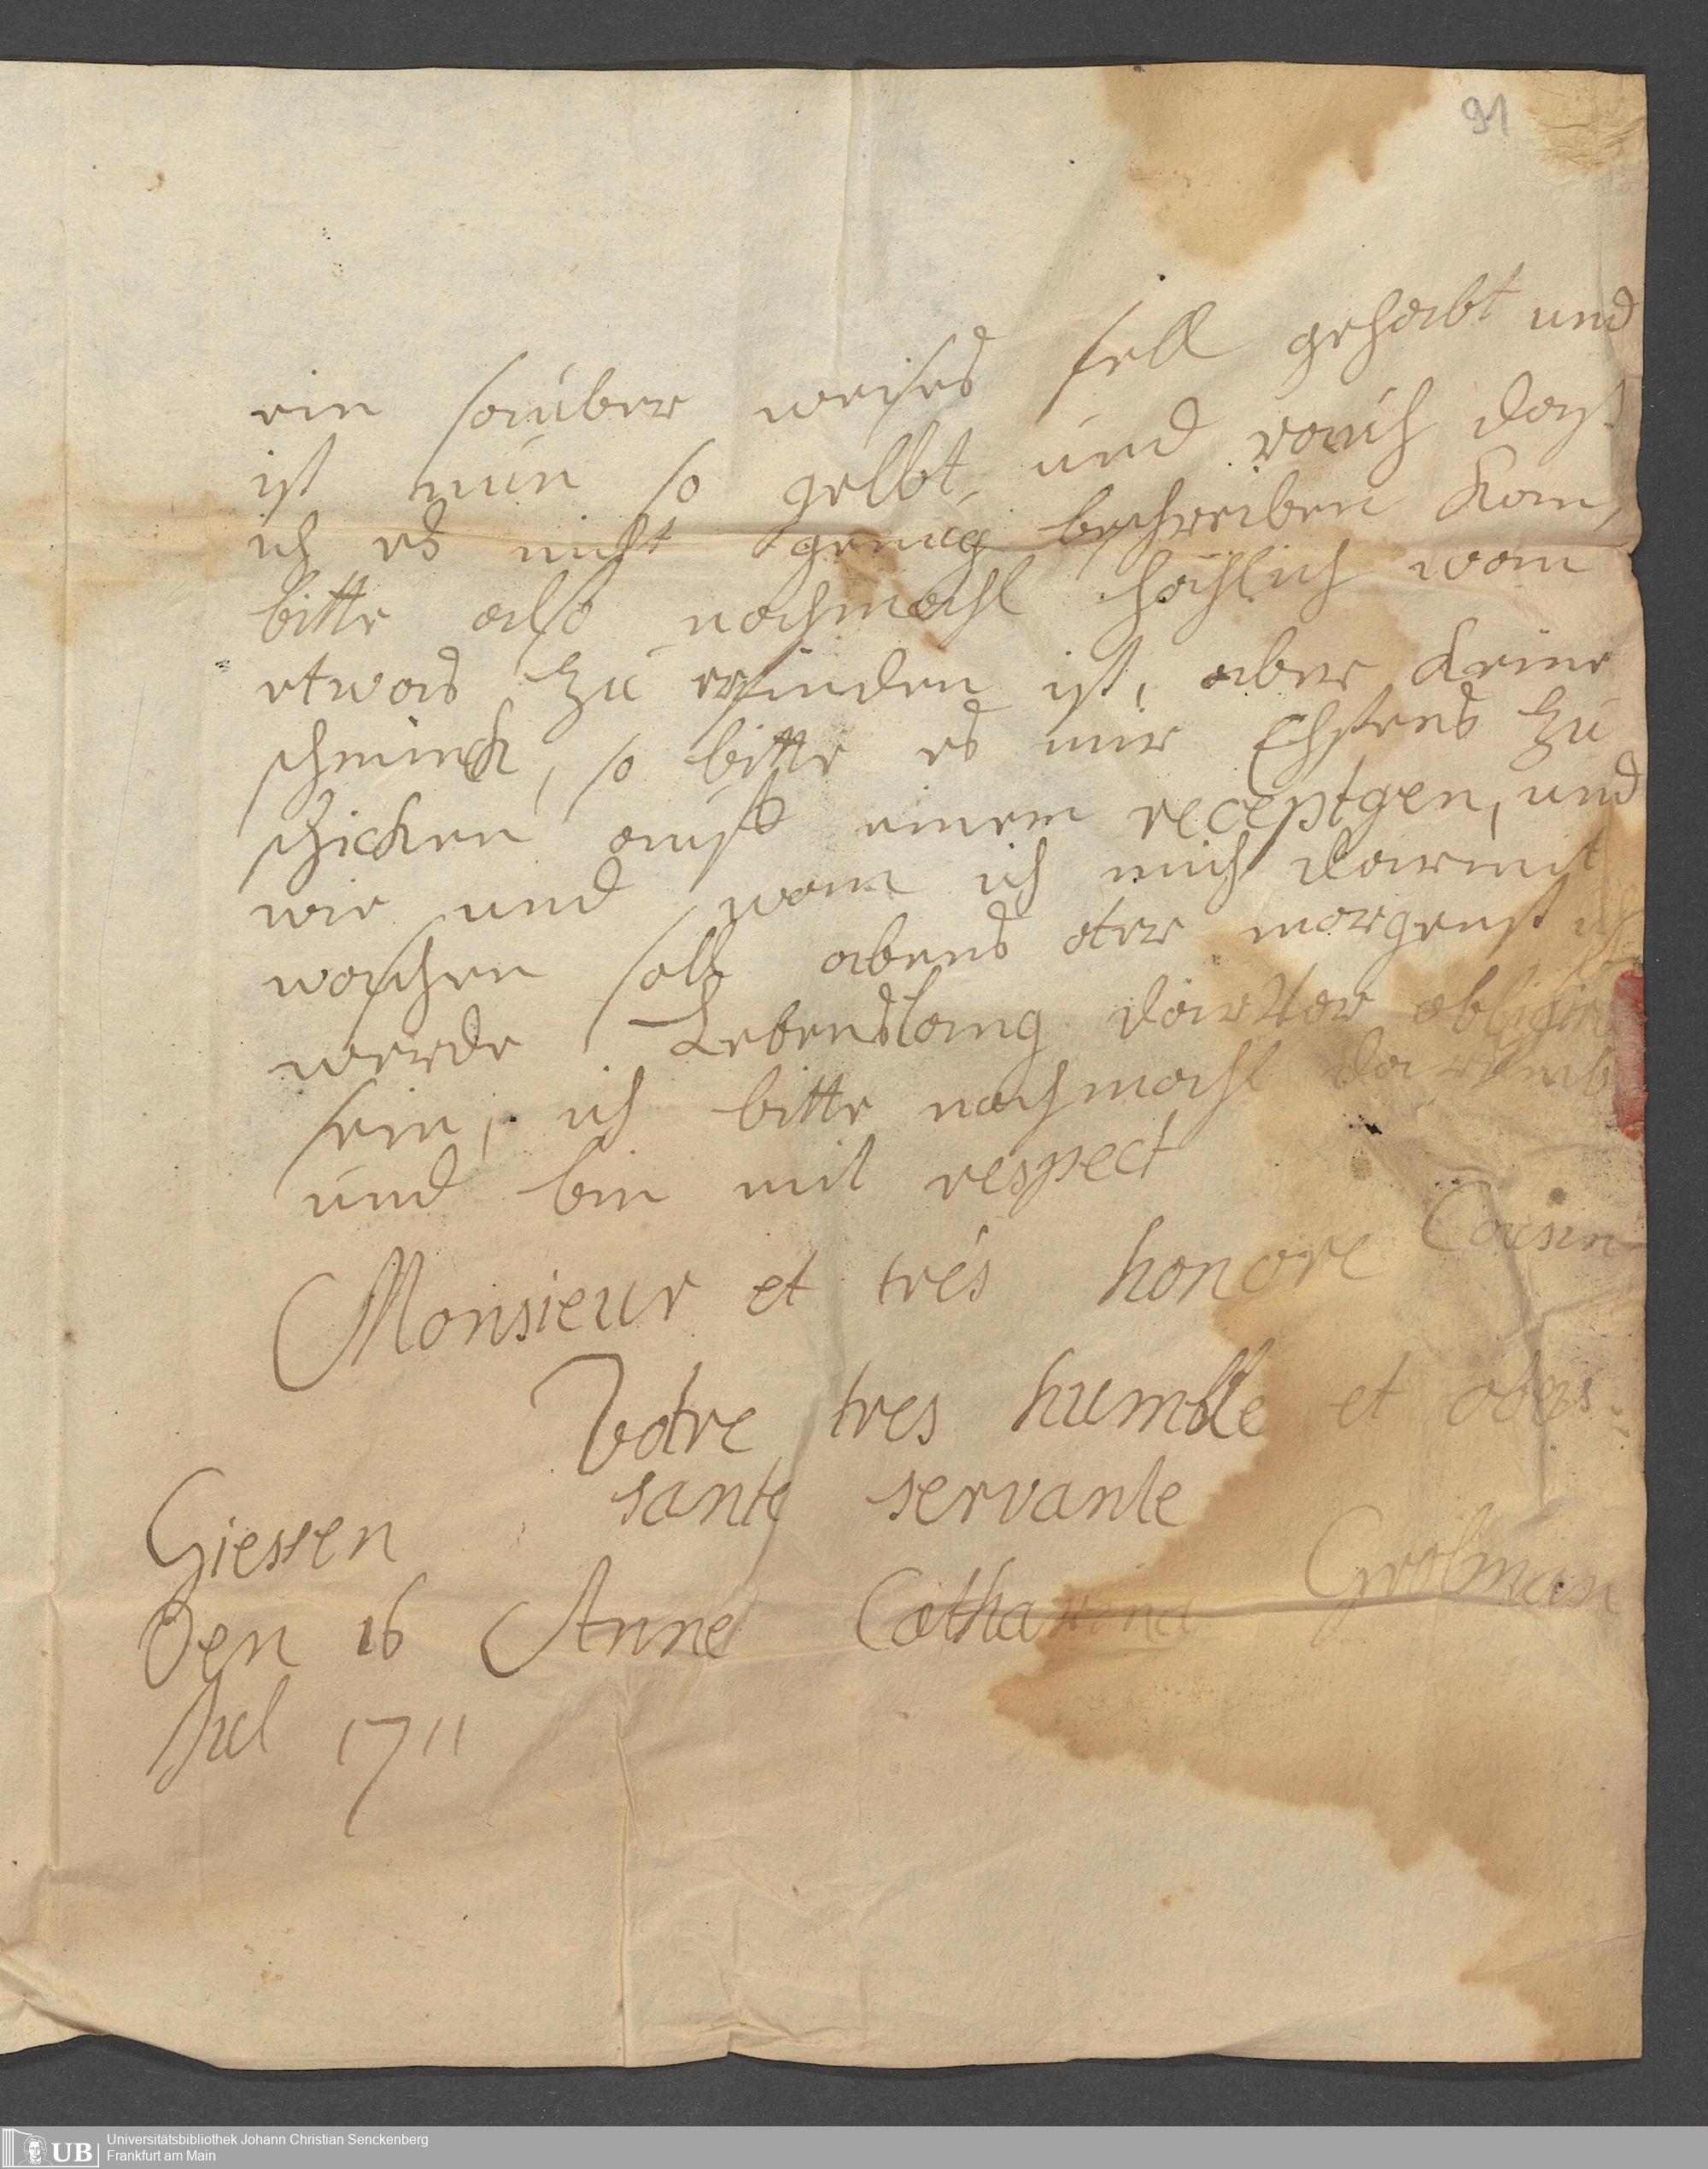 91
ein sauber weises fell gehabt und
ist nun so gelbt, und rauch daß
ich es nicht genug beschreiben kan,
bitte also nochmahl höchlich wan
etwas zu erfinden ist, aber keine
schminck, so bitte es mir Ehstens zu
schicken auff einem receptgen, und
wie und wan ich mich darmit
waschen soll abens oter morgenß ich
werde Lebenslang darvor obligirt
sein, ich bitte nochmahl darumb
und bin mit respect
Monsieur et trés honore Cousin
Votre tres humble et obeis
sante servante
Giessen
Den 16 Anne Catharina Grolman
Jul 1711
UB Universitätsbibliothek Johann Christian Senckenberg
Frankfurt am Main